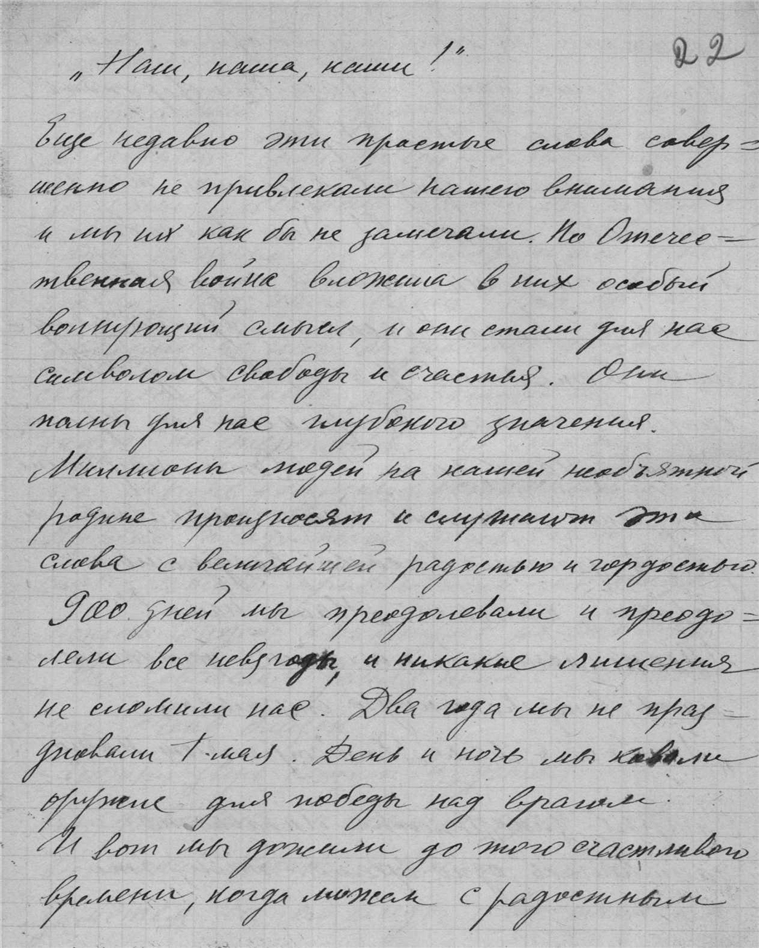 22
„Наш, наша, наши!"
Еще недавно эти простые слова совер=
шенно не привлекали нашего внимания
и мы их как бы не замечали. Но Отече=
ственная война вложила в них особый
волнующий смысл, и они стали для нас
символом свободы и счастья. Они
полны для нас глубокого значения.
Миллионы людей на нашей необъятной
родине произносят и слушают эти
слова с величайшей радостью и гордостью.
900 дней мы преодолевали и преодо=
лели все невзгоды, и никакие лишения
не сломили нас. Два года мы не праз=
дновали 1 мая. День и ночь мы ковали
оружие для победы над врагом.
И вот мы дожили до того счастливого
времени, когда можем с радостным